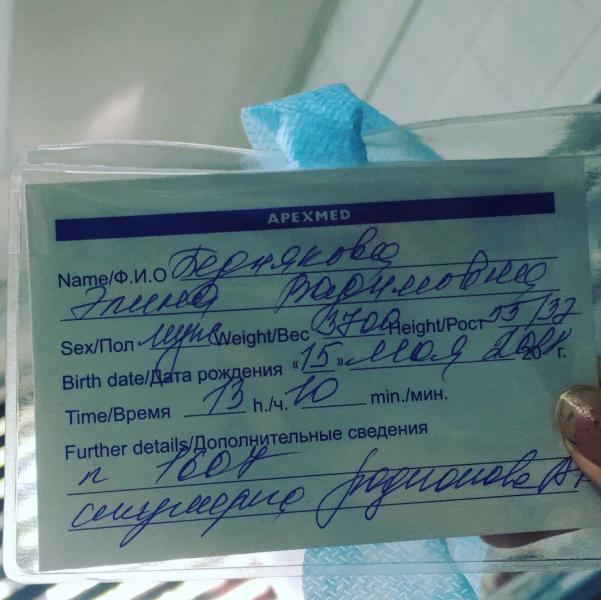 APEXMED
Name/Ф.И.О Беднякова
Элина Вадимовна
Sex/Пол муж Weight/Вес 3700 Height/Рост 55/37
Birth date/Дата рождения «15» мая 20 г.
Time/Время 13 h./ч. 10 min./мин.
Further details/Дополнительные сведения
п 1607
акушерка Родионова